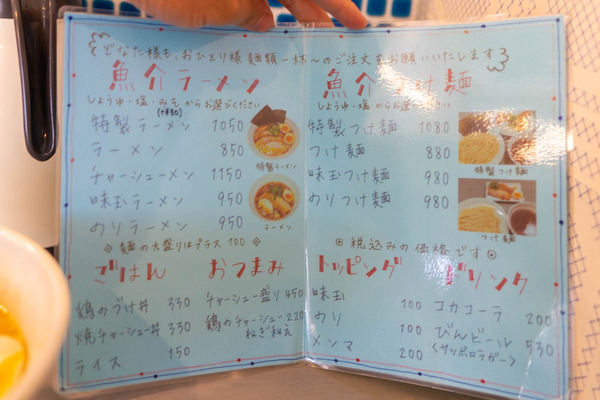 どなた様も、おひとり様 麺類一杯〜のご注文をお願いいたします
魚介ラーメン
しょうゆ・塩・みそからお選びください
(+¥50)
特製ラーメン 1050
ラーメン 850
チャーシューメン 1150
味玉ラーメン 950
のりラーメン 950
特製ラーメン
ラーメン
◇ 麺の大盛りはプラス 100 ◇
魚介つけ麺
しょうゆ・塩からお選びください
特製つけ麺 1080
つけ麺 880
味玉つけ麺 980
のりつけ麺 980
特製つけ麺
つけ麺
◎ 税込みの価格です ◎
ごはん
鶏のづけ丼 330
焼チャーシュー丼 330
ライス 150
おつまみ
チャーシュー盛り 450
鶏のチャーシュー 220
ねぎ和え
トッピング
味玉 100
のり 100
メンマ 200
ドリンク
コカコーラ 200
びんビール 530
〈サッポロラガー〉